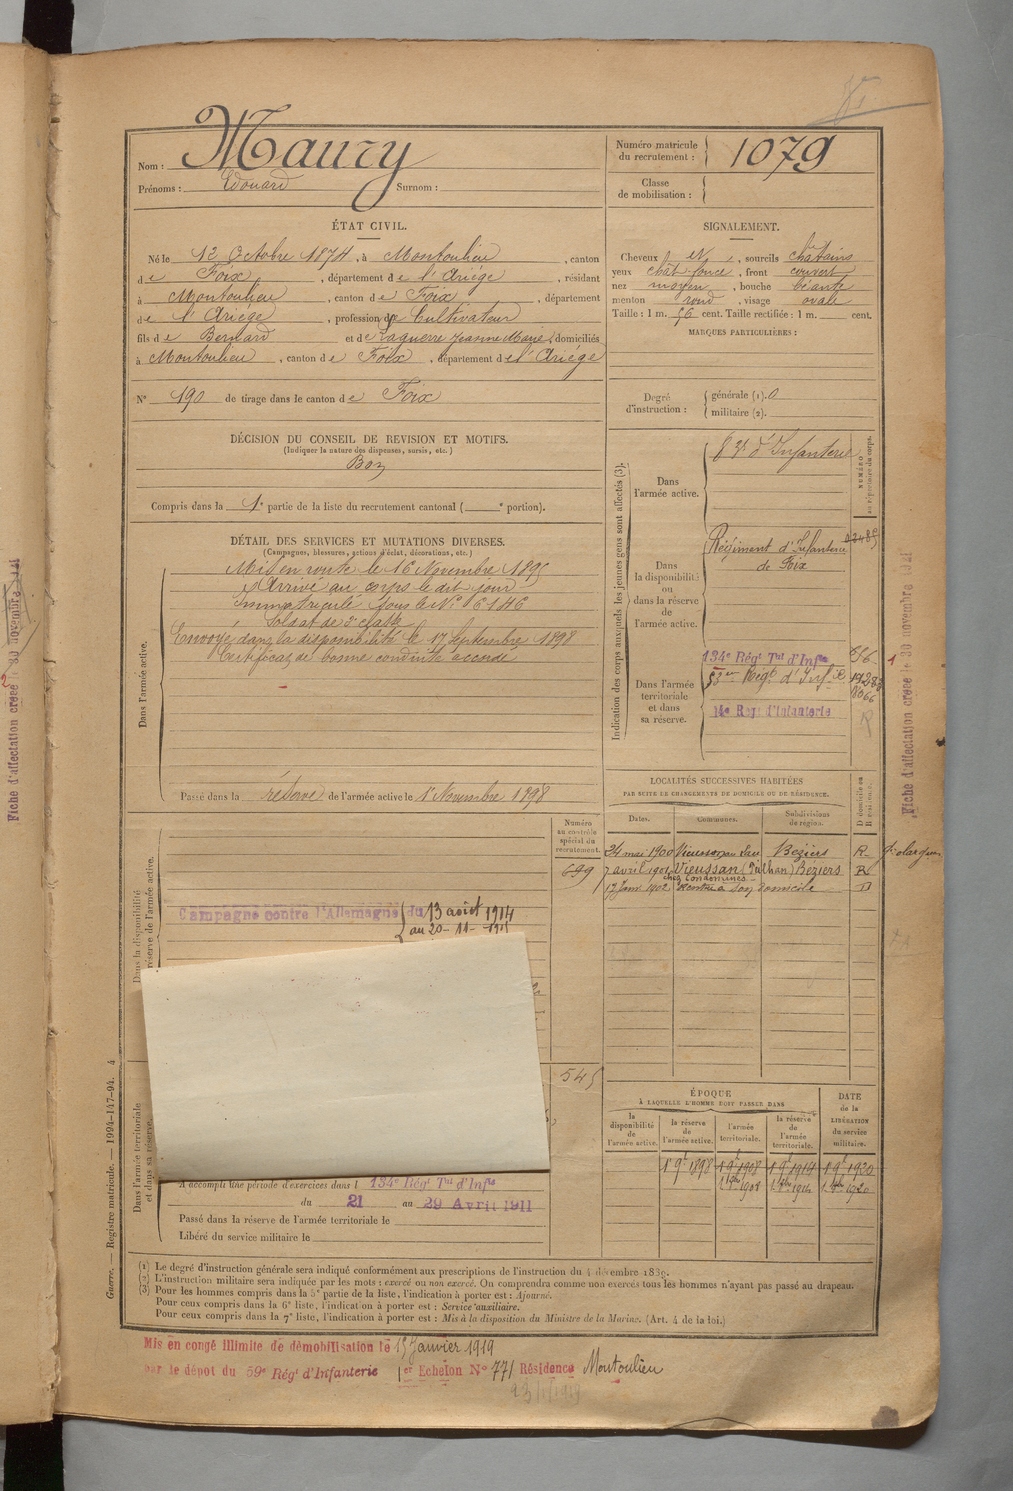 Nom : Maury
Prénoms : Edouard Surnom :
Numéro matricule du recrutement : 1079
Classe de mobilisation :
ÉTAT CIVIL.
Né le 12 Octobre 1874, à Montoulieu, canton
de Foix, département de l'Ariége, résidant
à Montoulieu, canton de Foix, département
de l'Ariége, profession de Cultivateur
fils de Bernard et de Laguerre Jeanne Marie, domiciliés
à Montoulieu, canton de Foix, département de l'Ariége
N° 190 de tirage dans le canton de Foix
SIGNALEMENT.
Cheveux et, sourcils châtains
yeux chât foncé, front couvert
nez moyen, bouche béante
menton rond, visage ovale
Taille : 1 m. 56 cent. Taille rectifiée : 1 m. cent.
MARQUES PARTICULIÈRES :
Degré d'instruction : générale (1). 0
militaire (2).
DÉCISION DU CONSEIL DE REVISION ET MOTIFS.
(Indiquer la nature des dispenses, sursis, etc.)
Bon
Compris dans la 1e partie de la liste du recrutement cantonal ( e portion).
DÉTAIL DES SERVICES ET MUTATIONS DIVERSES.
(Campagnes, blessures, actions d'éclat, décorations, etc.)
Dans l'armée active.
Mis en route le 16 Novembre 1895
Arrivé au corps le dit jour
Immatriculé sous le N° 6146
Soldat de 2e classe
Envoyé dans la disponibilité le 17 Septembre 1898
Certificat de bonne conduite accordé
Passé dans la réserve de l'armée active le 1er Novembre 1898
Indication des corps auxquels les jeunes gens sont affectés (3).
NUMÉRO au répertoire du corps.
Dans l'armée active.
d'Infanterie
Dans la disponibilité ou dans la réserve de l'armée active.
Régiment d'Infanterie
de Foix
Dans l'armée territoriale et dans sa réserve.
134e Régt Tal d'Infie
53me Régt d'Infie
14e Régt d'Infanterie
LOCALITÉS SUCCESSIVES HABITÉES
PAR SUITE DE CHANGEMENTS DE DOMICILE OU DE RÉSIDENCE.
Dates. Communes. Subdivisions de région. D domicile ou R résidence.
24 mai 1900 Vieussan Béziers R
7 avril 1901 Vieussan (Julhan) Béziers R
chez Condomines
1902 Rentré à son domicile D
Numéro au contrôle spécial du recrutement.
699
Dans la disponibilité
réserve de l'armée active.
Campagne contre l'Allemagne du 13 août 1914
au 20-11-1915
545
Dans l'armée territoriale
et dans sa réserve.
A accompli une période d'exercices dans l 134e Régt Tal d'Infie
du 21 au 29 Avril 1911
Passé dans la réserve de l'armée territoriale le
Libéré du service militaire le
ÉPOQUE
À LAQUELLE L'HOMME DOIT PASSER DANS
la disponibilité de l'armée active.
la réserve de l'armée active.
l'armée territoriale.
la réserve de l'armée territoriale.
DATE de la LIBÉRATION du service militaire.
1er 9bre 1898 1er 9bre 1908 1er 9bre 1914 1er 9bre 1920
1908 1914 1920
(1) Le degré d'instruction générale sera indiqué conformément aux prescriptions de l'instruction du 4 décembre 1889.
(2) L'instruction militaire sera indiquée par les mots : exercé ou non exercé. On comprendra comme non exercés tous les hommes n'ayant pas passé au drapeau.
(3) Pour les hommes compris dans la 5e partie de la liste, l'indication à porter est : Ajourné.
Pour ceux compris dans la 6e liste, l'indication à porter est : Service auxiliaire.
Pour ceux compris dans la 7e liste, l'indication à porter est : Mis à la disposition du Ministre de la Marine. (Art. 4 de la loi.)
Mis en congé illimité de démobilisation le 15 Janvier 1919
par le dépôt du 59e Régt d'Infanterie 1er Echelon N° 771 Résidence Montoulieu
23/1/1919
Guerre. — Registre matricule. — 1994-147-94. 4
Fiche d'affectation créée le 30 novembre 1921
Fiche d'affectation créée le 30 novembre 1921